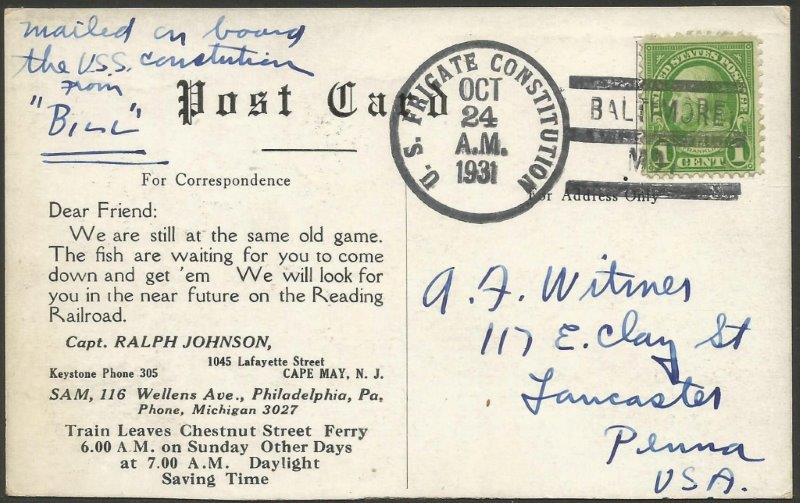 mailed on board
the U.S.S. constution
from
"BILL"
Post Card
U.S. FRIGATE CONSTITUTION
OCT
24
A.M.
1931
BALTIMORE,
M
UNITED STATES POSTAGE
FRANKLIN
1 CENT 1
For Correspondence
For Address Only
Dear Friend:
We are still at the same old game.
The fish are waiting for you to come
down and get 'em We will look for
you in the near future on the Reading
Railroad.
Capt. RALPH JOHNSON,
1045 Lafayette Street
Keystone Phone 305 CAPE MAY, N. J.
SAM, 116 Wellens Ave., Philadelphia, Pa.
Phone, Michigan 3027
Train Leaves Chestnut Street Ferry
6.00 A.M. on Sunday Other Days
at 7.00 A.M. Daylight
Saving Time
A. F. Witmer
117 E. Clay St
Lancaster
Penna
USA.